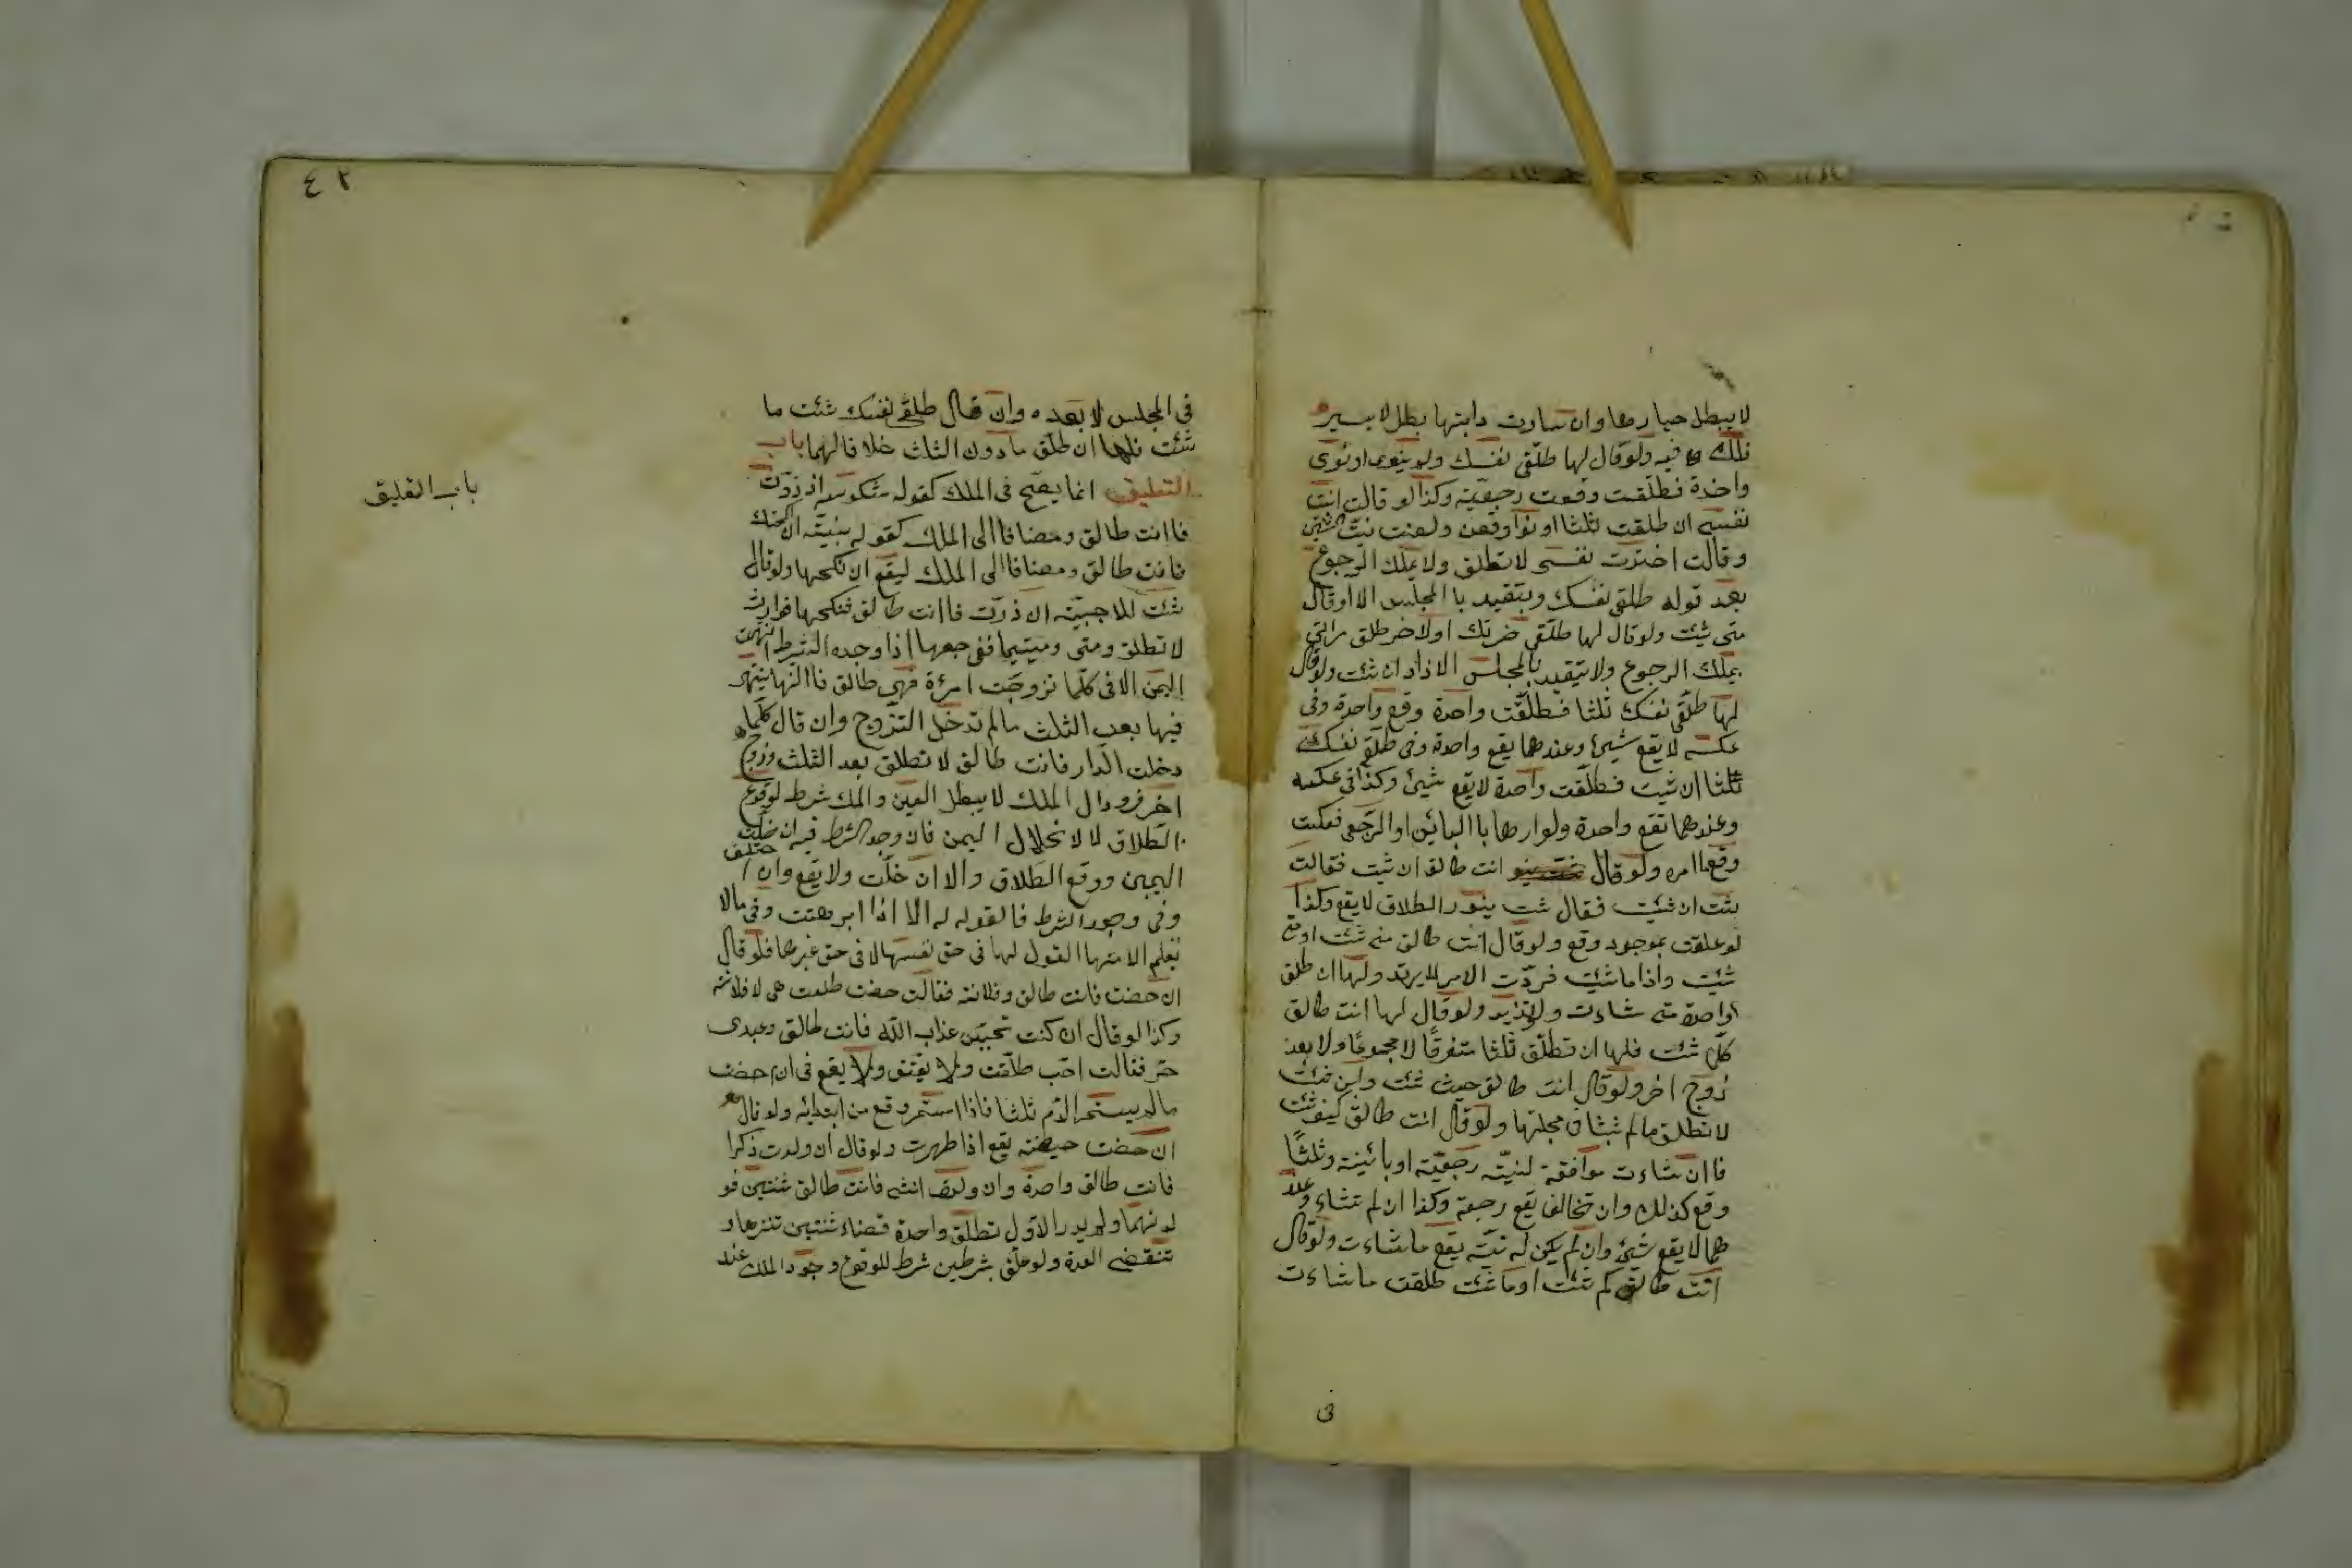 لا يبطل خيارها وان سارت دابتها بطل لا بسير
فلك فيه ولو قال لها طلقى نفسك ولم ينوى او نوى
واحدة فطلقت وقعت رجعية وكذا لو قالت انت
نفسى ان طلقت ثلثا او نوا وقعن ولغت نيت الثنتين
وقالت اخترت نفسى لا تطلق ولا يملك الرجوع
بعد قوله طلقى نفسك ويتقيد باالمجلس الا او قال
متى شئت ولو قال لها طلقى ضرتك او لاخر طلق مراتى
يملك الرجوع ولا يتقيد بالمجلس الا اذاد ان شئت ولو قال
لها طلقى نفسك ثلثا فطلقت واحدة وقع واحدة وفى
عكسه لا يقع شيئ وعندهما يقع واحدة وفى طلقى نفسك
ثلثا ان شيت فطلقت واحدة لا يقع شيئ وكذا فى عكسه
وعندهما تقع واحدة ولو امرها باالبائن او الرجعى فعكست
وقع ماامره ولو قال انت طالق ان شيت فقالت
شئت ان شئت فقال شت ينور الطلاق لا يقع وكذا
لو علقت بموجود وقع ولو قال انت طالق متى شئت او متى
شئت واذا ما شئت فردت الامر لا يرتد ولها ان طلق
واحدة متى شاءت ولا تزيد ولو قال لها انت طالق
كلما شئت فلها ان تطلق ثلثا متفرقا لا مجموعا ولا بعد
زوج اخر ولو قال انت طالق حيث شئت واين شئت
لا تطلق مالم تشا فى مجلسها ولو قال انت طالق كيف شئت
فا ان شاءت موافقة لنيته رجعية او بائينة وثلثا
وقع كذلك وان تخالف يقع رجعة وكذا ان لم تشاء وعند
هما لا يقع شيئ وان لم يكن له نية يقع ما شاءت ولو قال
انت طالق كم شئت او ما شئت طلقت ما شاءت
فى
٤٢
فى المجلس لا بعده وان قال طلقى نفسك شئت ما
شئت فلها ان طلق مادون الثلث خلافا لهما باب
التعليق انما يصح فى الملك كقوله منكوسه ان زرت
فاانت طالق ومضافا الى الملك كقوله ان نكحتك
فانت طالق ومضافا الى الملك ليقع ان نكحها ولو قال
شئت للاجبية ان زرت فاانت طالق فنكحها فزارت
لا تطلق ومتى ومتيما ففى جمعها اذا وجد الشرط انتهت
اليمن الا فى كلما تزوجت امرئة فهى طالق فاانها ينتهى
فيها بعد الثلث مالم تدخل التزوج وان قال كلما
دخلت الدار فانت طالق لا تطلق بعد الثلث وزوج
اخر فزوال الملك لا يبطل اليمين والملك شرط لوقوع
الطلاق لا لانحلال اليمن فان وجد الشرط فيه انحلت
اليمين ووقع الطلاق والا انحلت ولا يقع وان اختلف
وفى وجود الشرط فالقوله له الا اذا ابرهنت وفى مالا
يعلم الا منها القول لها فى حق نفسها لا فى حق غيرها فلو قال
ان حضت فانت طالق وفلانة فقالت حضت طلعت هى لا فلانة
وكذا لو قال ان كنت تحبين عذاب الله فانت طالق وعبدى
حر فقالت احب طلقت ولا يعتق ولا يقع فى ان حضت
مالم يستمر الدم ثلثا فاذا استمر وقع من ابتدائه ولو قال
ان حضت حيضة يقع اذا طهرت ولو قال ان ولدت ذكرا
فانت طالق واحدة وان ولدت انثى فانت طالق ثنتين فو
لدتهما ولم يدر الاول تطلق واحدة قضاء ثنتين تنزها و
تنقضى العدة ولو علق بشرطين شرط للوقوع وجود الملك عند
باب التعليق